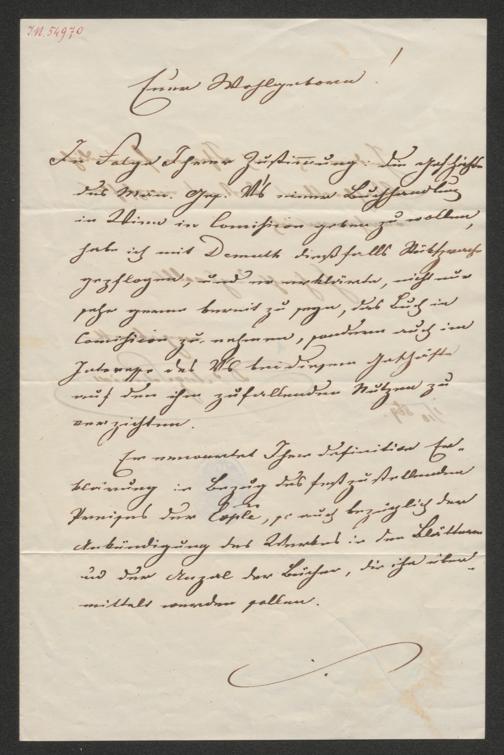 I.N. 54970
Euer Wohlgeboren!
In Folge Ihrer Zustimmung: die Geschichte
des Män. Ges. V's einer Buchhandlung
in Wien in Comission geben zu wollen,
habe ich mit Demuth dießfalls Rücksprache
gepflogen, und er erklärte, nicht nur
sehr gerne bereit zu seyn, das Buch in
Comission zu nehmen, sondern auch im
Interesse des VS bei diesem Geschäfte
auf den ihm zufallenden Nutzen zu
verzichten.
Er erwartet Ihre definitive Er-
klärung in Bezug des festzustellenden
Preises der, so auch bezüglich der
Ankündigung des Werkes in den Blättern
und der Anzal der Bücher, die ihm über-
mittelt werden sollen.